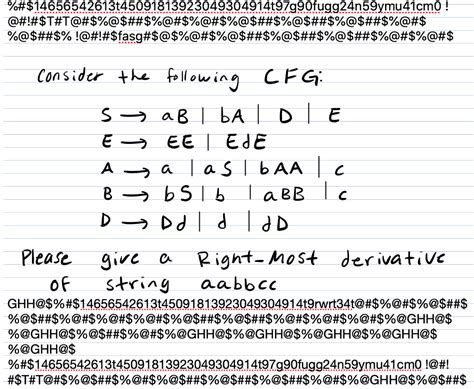 %#$14656542613t45091813923049304914t97g90fugg24n59ymu41cm0 !
@#!#$T#T@#$%@$##$%@#$%@#$%@$##$%@$##$%@$##$%@#$
%@$##$% !@#!#$fasg#$@$%@#$%@$##$%@$##$%@$##$%@#$%@#$
Consider the following CFG:
S → aB | bA | D | E
E → EE | EdE
A → a | aS | bAA | c
B → bS | b | aBB | c
D → Dd | d | dD
Please give a Right-Most derivative
of string aabbcc
GHH@$%#$14656542613t45091813923049304914t9rwrt34t@#$%@#$%@$##$
%@$##$%@#$%@#$%@#$%@$##$%@$##$%@#$%@#$%@#$%@GHH@$
%@GHH@$%@$##$%@#$%@GHH@$%@GHH@$%@GHH@$%@GHH@$
%@GHH@$
%#$14656542613t45091813923049304914t97g90fugg24n59ymu41cm0 !@#!
#$T#T@#$%@$##$%@#$%@#$%@$##$%@$##$%@#$%@GHH@$%@$##$